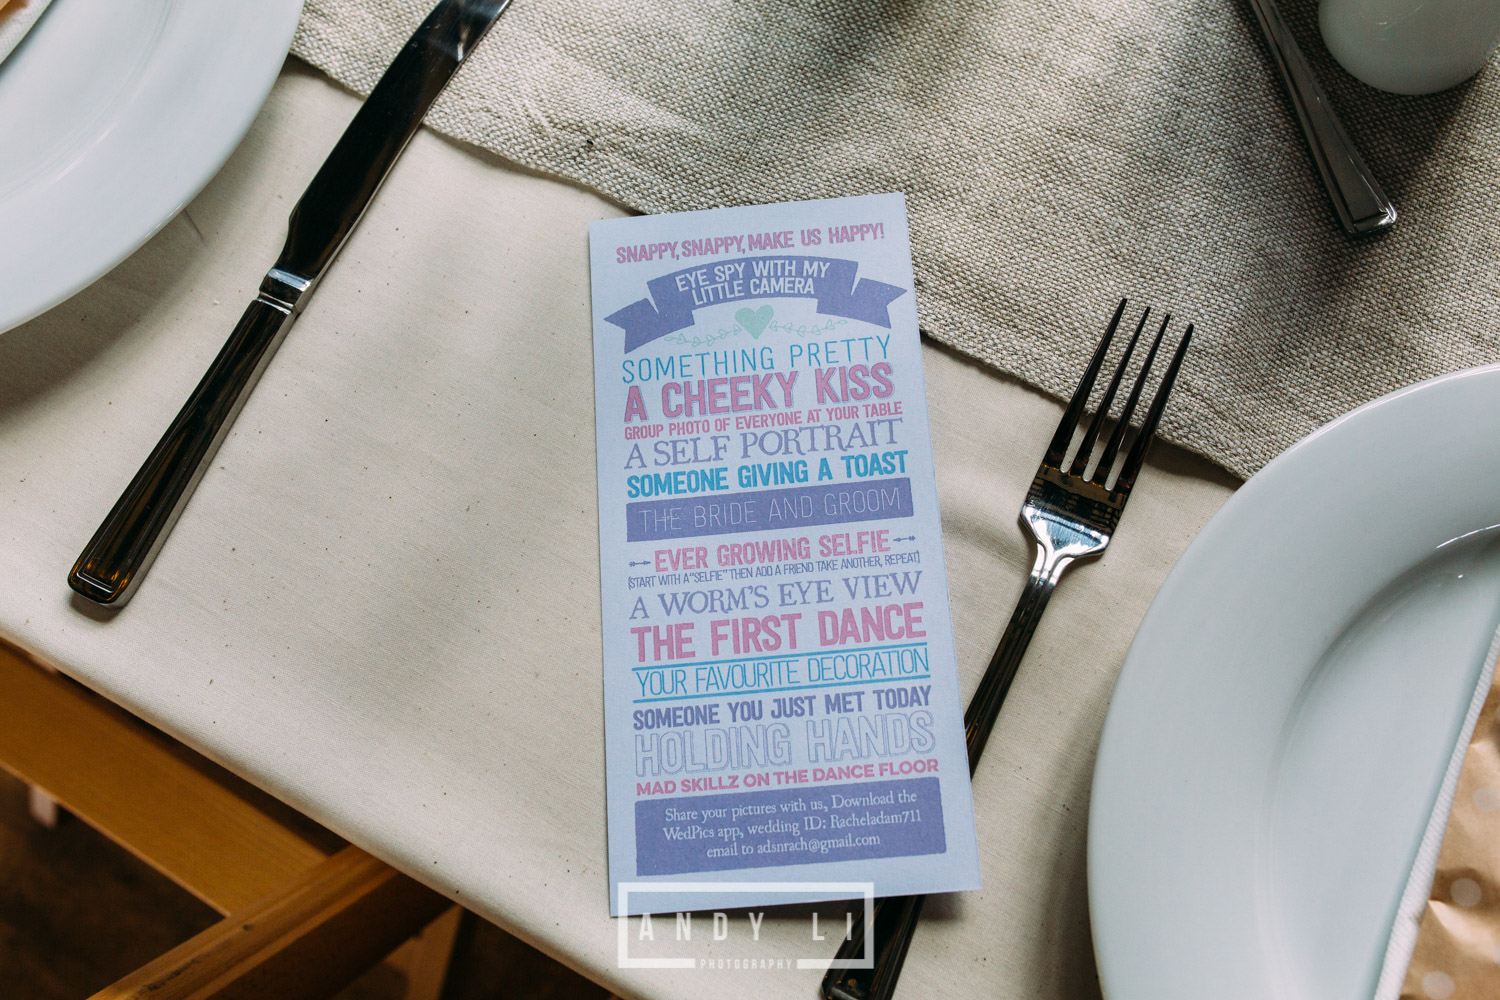 SNAPPY, SNAPPY, MAKE US HAPPY!
EYE SPY WITH MY
LITTLE CAMERA
SOMETHING PRETTY
A CHEEKY KISS
GROUP PHOTO OF EVERYONE AT YOUR TABLE
A SELF PORTRAIT
SOMEONE GIVING A TOAST
THE BRIDE AND GROOM
EVER GROWING SELFIE
(START WITH A "SELFIE" THEN ADD A FRIEND TAKE ANOTHER, REPEAT)
A WORM'S EYE VIEW
THE FIRST DANCE
YOUR FAVOURITE DECORATION
SOMEONE YOU JUST MET TODAY
HOLDING HANDS
MAD SKILLZ ON THE DANCE FLOOR
Share your pictures with us, Download the
WedPics app, wedding ID: Racheladam711
email to adsnrach@gmail.com
ANDY LI
PHOTOGRAPHY